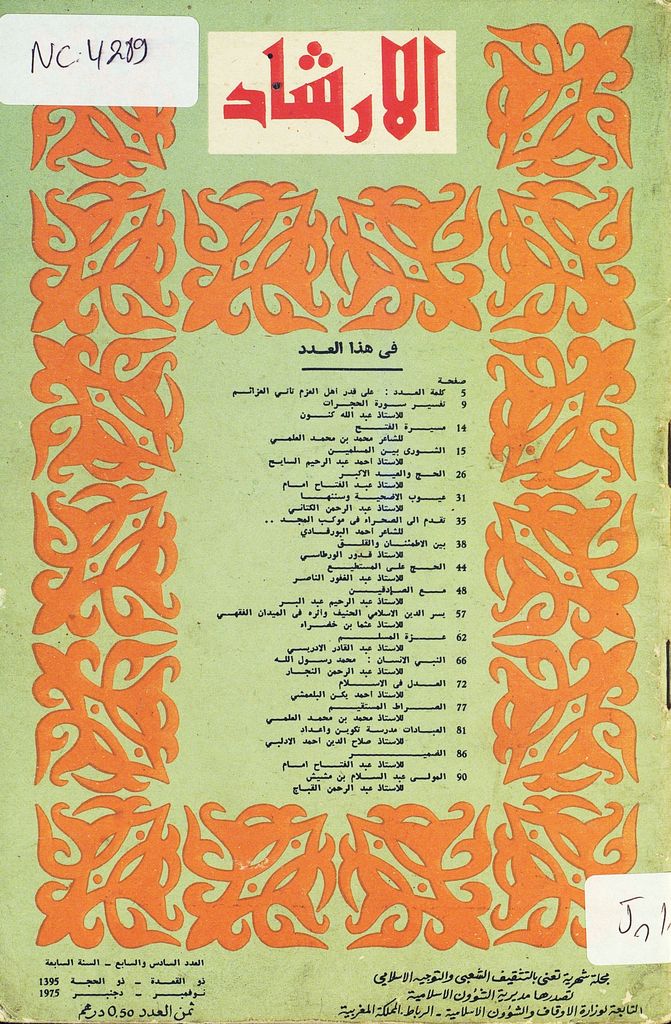 NC. 4289
الارشاد
في هذا العدد
صفحة
5 كلمة العدد : على قدر أهل العزم تأتي العزائم
9 تفسير سورة الحجرات
للاستاذ عبد الله كنون
14 مسيرة الفتح
للشاعر محمد بن محمد العلمي
15 الشورى بين المسلمين
للاستاذ احمد عبد الرحيم السايح
26 الحج والعيد الاكبر
للاستاذ عبد الفتاح امام
31 عيوب الاضحية وسننها
للاستاذ عبد الرحمن الكتاني
35 تقدم الى الصحراء في موكب المجد ..
للشاعر احمد البورقادي
38 بين الاطمئنان والقلق
للاستاذ قدور الورطاسي
44 الحج على المستطيع
للاستاذ عبد الغفور الناصر
48 مع الصادقين
للاستاذ عبد الرحيم عبد البر
57 يسر الدين الاسلامي الحنيف وأثره في الميدان الفقهي
للاستاذ عثما بن خضراء
62 عزة المسلم
للاستاذ عبد القادر الادريسي
66 النبي الانسان : محمد رسول الله
للاستاذ عبد الرحمن النجار
72 العدل في الاسلام
للاستاذ احمد يكن البلعمشي
77 الصراط المستقيم
للاستاذ محمد بن محمد العلمي
81 العبادات مدرسة تكوين واعداد
للاستاذ صلاح الدين احمد الادلبي
86 الضمير
للاستاذ عبد الفتاح امام
90 المولى عبد السلام بن مشيش
للاستاذ عبد الرحمن القباج
مجلة شهرية تعنى بالتثقيف الشعبي والتوجيه الاسلامي
تصدرها مديرية الشؤون الاسلامية
التابعة لوزارة الاوقاف والشؤون الاسلامية - الرباط. المملكة المغربية
العدد السادس والسابع - السنة السابعة
ذو القعدة - ذو الحجة 1395
نوفمبر - دجنبر 1975
ثمن العدد 0,50 درهم